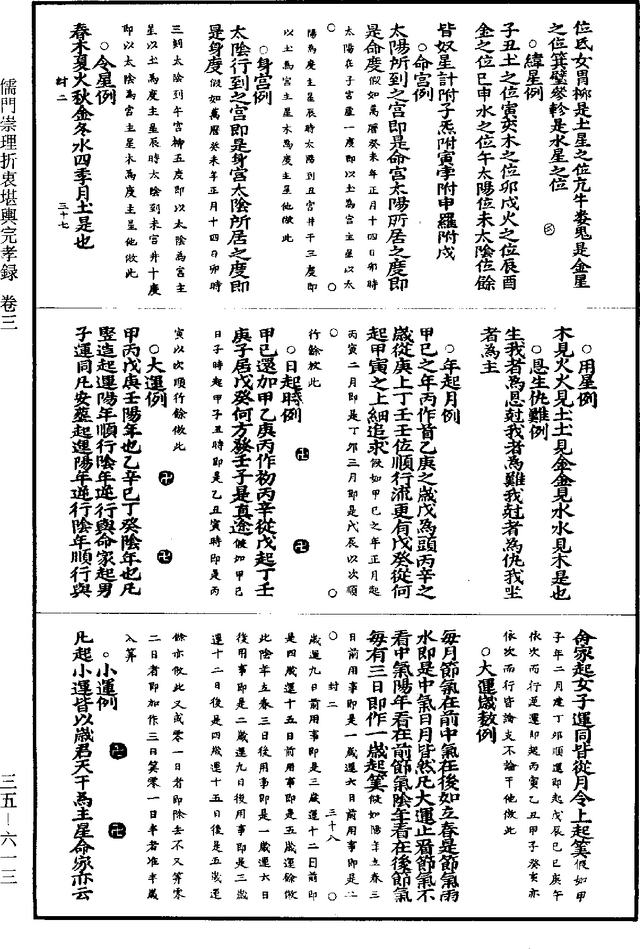 儒門崇理折衷堪輿完孝録 卷三
三五—六一三
位氐女胃柳是土星之位亢牛婁鬼是金星
之位箕壁參軫是水星之位
○緯星例
子丑土之位寅亥木之位卯戌火之位辰酉
金之位巳申水之位午太陽位未太陰位餘
皆奴星計附子炁附寅孛附申羅附戌
○命宮例
太陽所到之宮即是命宮太陽所居之度即
是命度假如萬曆癸未年正月十四日卯時
太陽在子宮虛一度即以土為宮主星以太
陽為度主星辰時太陽到丑宮井干三度即
以土為宮主星木為度主星他倣此
○身宮例
太陰行到之宮即是身宮太陰所居之度即
是身度假如萬曆癸未年正月十四日卯時
三刻太陰到午宮柳五度即以太陰為宮主
星以土為度主星辰時太陰到未宮井十度
即以太陰為宮主星木為度主星他倣此
○令星例
春木夏火秋金冬水四季月土是也
封二
三十七
○用星例
木見火火見土土見金金見水水見木是也
○恩生仇難例
生我者為恩尅我者為難我尅者為仇我坐
者為主
○年起月例
甲己之年丙作首乙庚之歲戊為頭丙辛之
歲從庚上丁壬壬位順行流更有戊癸從何
起甲寅之上細追求假如甲己之年正月起
丙寅二月即是丁卯三月即是戊辰以次順
行餘放此
○日起時例
甲己還加甲乙庚丙作初丙辛從戊起丁壬
庚子居戊癸何方發壬子是真途假如甲己
日子時起甲子丑時即是乙丑寅時即是丙
寅以次順行餘做此
○大運例
甲丙戊庚壬陽年也乙辛己丁癸陰年也凡
竪造起運陽年順行陰年逆行與命家起男
子運同凡安塟起運陽年逆行陰年順行與
命家起女子運同皆從月令上起筭假如甲
子年二月建丁卯順運即起戊辰己巳庚午
依次而行逆運即起丙寅乙丑甲子癸亥亦
依次而行皆論支不論干他做此
○大運歲數例
每月節氣在前中氣在後如立春是節氣雨
水即是中氣日月皆然凡大運止看節氣不
看中氣陽年看在前節氣陰年看在後節氣
每有三日即作一歲起筭假如陽年立春三
日前用事即是一歲運六日前用事即是二
封二
三十八
歲運九日前用事即是三歲運十二日前即
是四歲運十五日前用事即是五歲運餘做
此陰年立春三日後用事即是一歲運六日
後用事即是二歲運九日後用事即是三歲
運十二日後是四歲運十五日後是五歲運
餘亦倣此又或零一日者即除去不又筭零
二日者即加作三日筭零一日半者准半歲
入筭
○小運例
凡起小運皆以歲君天干為主星命家亦云